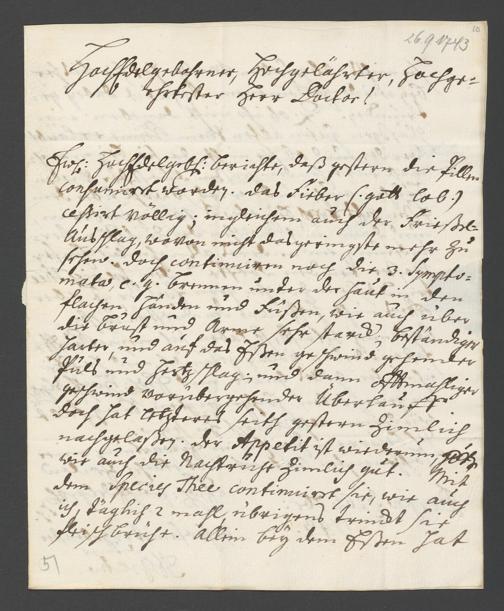 10
26.9.1743
Hochedelgebohrner, Hochgelährter, Hochge=
ehrtester Herr Doctor!
Ew: HochEdelgeb: berichte, daß gestern die Pillen
consumirt worden. das Fieber (: gott lob :)
cessirt völlig; ingleichem auch der Frießel=
Ausschlag, wovon nicht das geringste mehr zu
sehen. doch continuiren noch die 3. Sympto=
mata, e. g. brennen unter der Haut in den
flachen Händen und Füßen, wie auch über
die Brust und Arme sehr starck, beständiger
harter, und auf das Eßen geschwind gehender
Puls und Hertzschlag; und dann offtmahliger
geschwind vorübergehender
doch hat letzteres seith gestern zimlich
nachgelaßen. der Appetit ist wiederum gut
wie auch die Nachtruhe zimlich gut. Mit
dem Species Thee continuirt sie, wie auch
ich, täglich 2 mahl, übrigens trinckt sie
fleischbrühe. Allein bey dem Eßen hat
5